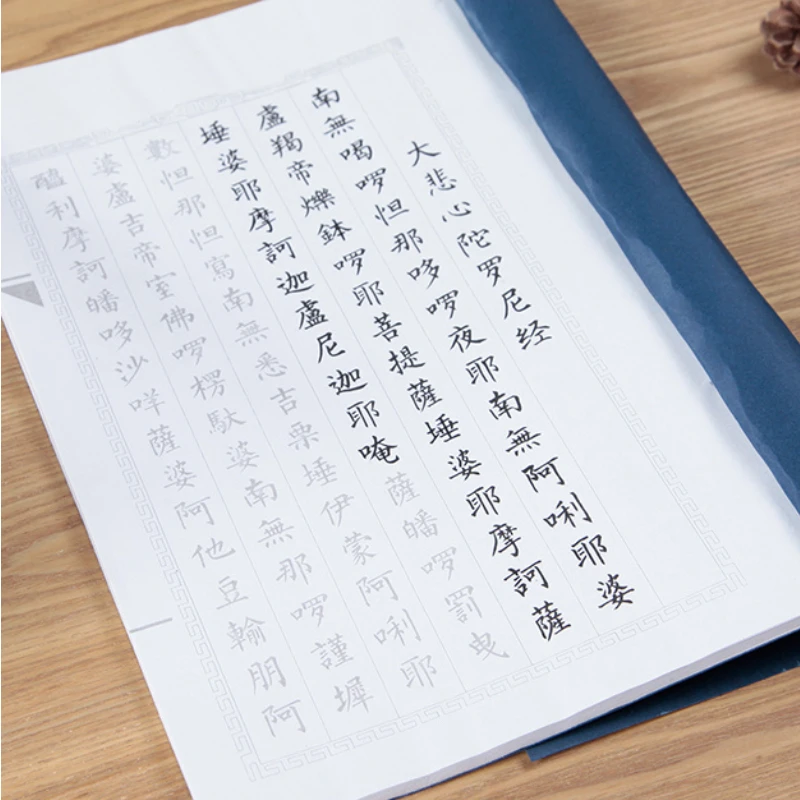 大悲心陀罗尼经
南無喝啰怛那哆啰夜耶南無阿唎耶婆
盧羯帝爍鉢啰耶菩提薩埵婆耶摩訶薩
埵婆耶摩訶迦盧尼迦耶唵薩皤啰罰曳
數怛那怛寫南無悉吉栗埵伊蒙阿唎耶
婆盧吉帝室佛啰楞馱婆南無那啰謹墀
醯利摩訶皤哆沙咩薩婆阿他豆輸朋阿